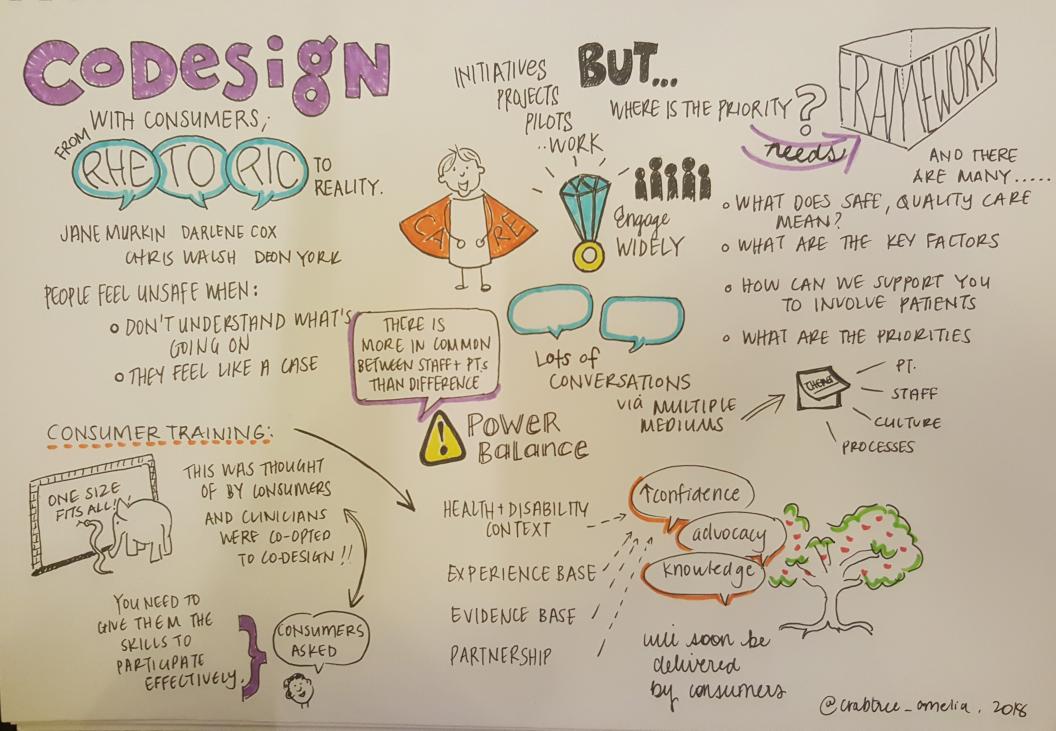 CoDesign
WITH CONSUMERS;
FROM
RHETORIC TO
REALITY.
JANE MURKIN DARLENE COX
CHRIS WALSH DEON YORK
PEOPLE FEEL UNSAFE WHEN:
o DON'T UNDERSTAND WHAT'S
GOING ON
o THEY FEEL LIKE A CASE
INITIATIVES
PROJECTS
PILOTS
..WORK
BUT...
WHERE IS THE PRIORITY?
needs
FRAMEWORK
CARE
Engage
WIDELY
AND THERE
ARE MANY.....
o WHAT DOES SAFE, QUALITY CARE
MEAN?
o WHAT ARE THE KEY FACTORS
o HOW CAN WE SUPPORT YOU
TO INVOLVE PATIENTS
o WHAT ARE THE PRIORITIES
THERE IS
MORE IN COMMON
BETWEEN STAFF + PTS
THAN DIFFERENCE
LOTS of
CONVERSATIONS
VIA MULTIPLE
MEDIUMS
PT.
STAFF
CULTURE
PROCESSES
! POWER
Balance
CONSUMER TRAINING:
ONE SIZE
FITS ALL!
THIS WAS THOUGHT
OF BY CONSUMERS
AND CLINICIANS
WERE CO-OPTED
TO CO-DESIGN!!
YOU NEED TO
GIVE THEM THE
SKILLS TO
PARTICIPATE
EFFECTIVELY.
CONSUMERS
ASKED
HEALTH + DISABILITY
CONTEXT
EXPERIENCE BASE
EVIDENCE BASE
PARTNERSHIP
↑confidence
advocacy
knowledge
will soon be
delivered
by consumers
@crabtree_amelia. 2018